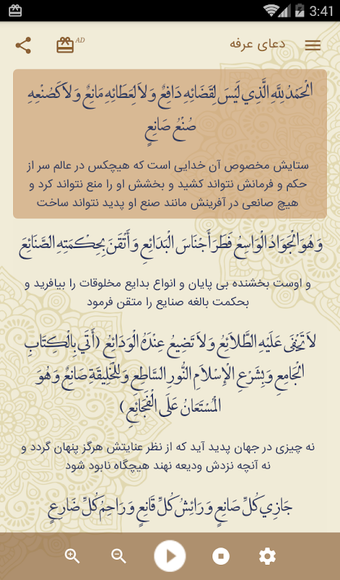 3:41
دعای عرفه
AD
اَلْحَمْدُ لِلَّهِ الَّذِي لَيْسَ لِقَضَائِهِ دَافِعٌ وَ لاَ لِعَطَائِهِ مَانِعٌ وَ لاَ كَصُنْعِهِ
صُنْعُ صَانِعٍ
ستایش مخصوص آن خدایی است که هیچکس در عالم سر از
حکم و فرمانش نتواند کشید و بخشش او را منع نتواند کرد و
هیچ صانعی در آفرینش مانند صنع او پدید نتواند ساخت
وَ هُوَ الْجَوَادُ الْوَاسِعُ فَطَرَ أَجْنَاسَ الْبَدَائِعِ وَ أَتْقَنَ بِحِكْمَتِهِ الصَّنَائِعَ
و اوست بخشنده بی پایان و انواع بدایع مخلوقات را بیافرید و
بحکمت بالغه صنایع را متقن فرمود
لاَ تَخْفَى عَلَيْهِ الطَّلاَئِعُ وَ لاَ تَضِيعُ عِنْدَهُ الْوَدَائِعُ (أَتَى بِالْكِتَابِ
الْجَامِعِ وَ بِشَرْعِ الْإِسْلاَمِ النُّورِ السَّاطِعِ وَ لِلْخَلِيقَةِ صَانِعٌ وَ هُوَ
الْمُسْتَعَانُ عَلَى الْفَجَائِعِ)
نه چیزی در جهان پدید آید که از نظر عنایتش هرگز پنهان گردد و
نه آنچه نزدش ودیعه نهند هیچگاه نابود شود
جَازِي كُلِّ صَانِعٍ وَ رَائِشُ كُلِّ قَانِعٍ وَ رَاحِمُ كُلِّ ضَارِعٍ